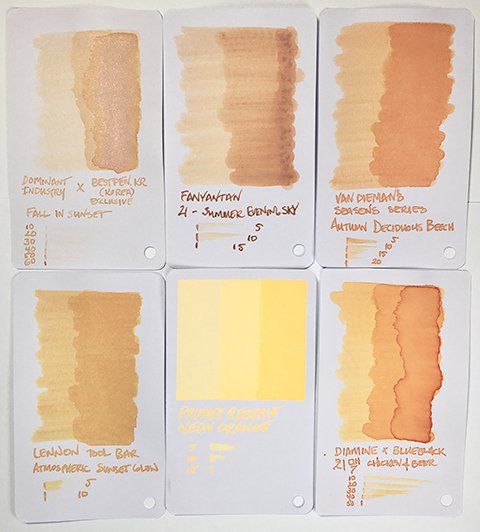 DOMINANT INDUSTRY X BESTPEN.KR
(KOREA)
EXCLUSIVE
FALL IN SUNSET
FANYANTAN
21 - SUMMER EVENING SKY
5
10
15
VAN DIEMAN'S
SEASONS SERIES
AUTUMN DECIDUOUS BEECH
5
10
15
20
LENNON TOOL BAR
ATMOSPHERIC SUNSET GLOW
5
10
PRIVATE RESERVE
NEON ORANGE
5
10
15
DIAMINE X BLUEBLACK
21 CHICKEN & BEER